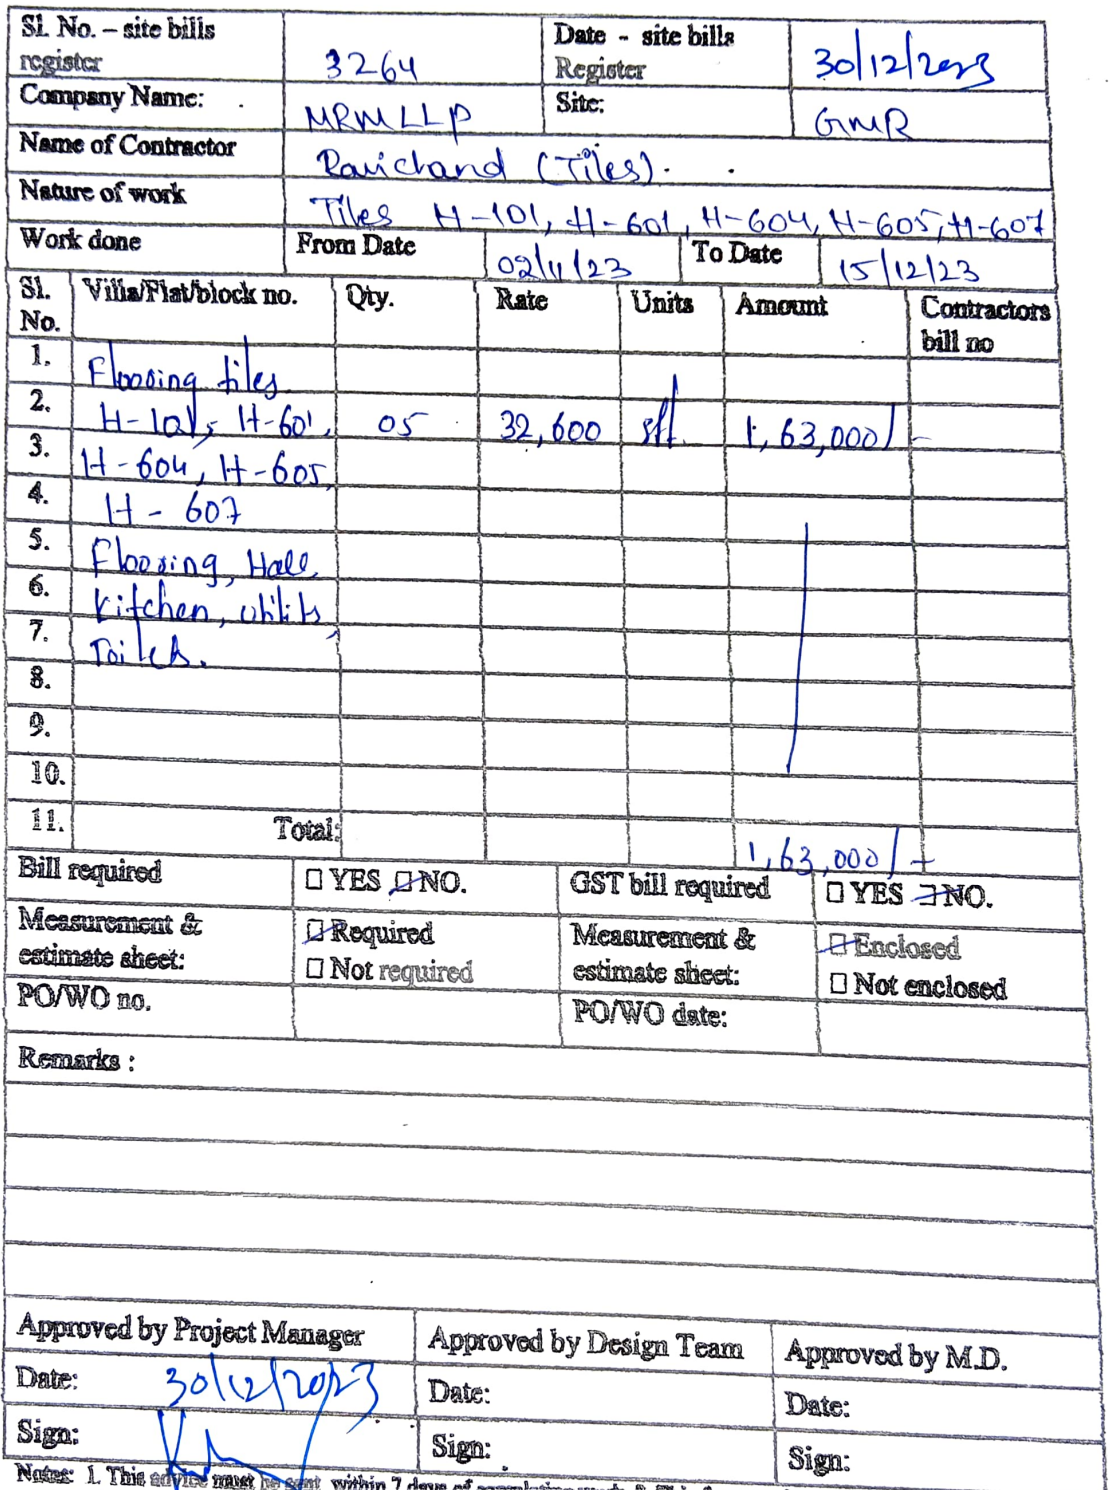 Sl. No. – site bills register 3264 Date - site bills Register 30/12/2023
Company Name: MRMLLP Site: GMR
Name of Contractor Ravichand (Tiles).
Nature of work Tiles H-101, H-601, H-604, H-605, H-607
Work done From Date 02/11/23 To Date 15/12/23
Sl. No. Villa/Flat/block no. Qty. Rate Units Amount Contractors bill no
1. Flooring tiles
2. H-101, H-601, 05 32,600 sft 1,63,000/-
3. H-604, H-605,
4. H-607
5. Flooring, Hall,
6. Kitchen, utility
7. Toilets.
8.
9.
10.
11. Total: 1,63,000/-
Bill required ☐ YES ☑ NO. GST bill required ☐ YES ☑ NO.
Measurement & estimate sheet: ☑ Required ☐ Not required Measurement & estimate sheet: ☑ Enclosed ☐ Not enclosed
PO/WO no. PO/WO date:
Remarks :
Approved by Project Manager Approved by Design Team Approved by M.D.
Date: 30/12/2023 Date: Date:
Sign: Sign: Sign:
Notes: 1. This advice must be sent within 7 days of